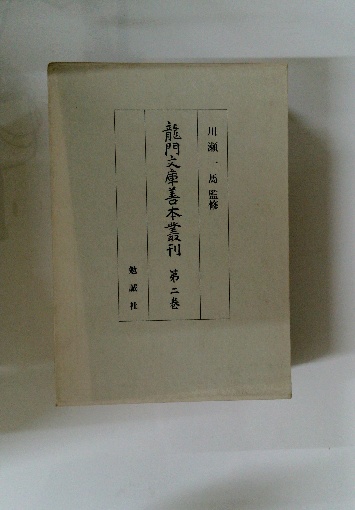 川瀬一馬監修
龍門文庫善本叢刊 第二巻
勉誠社